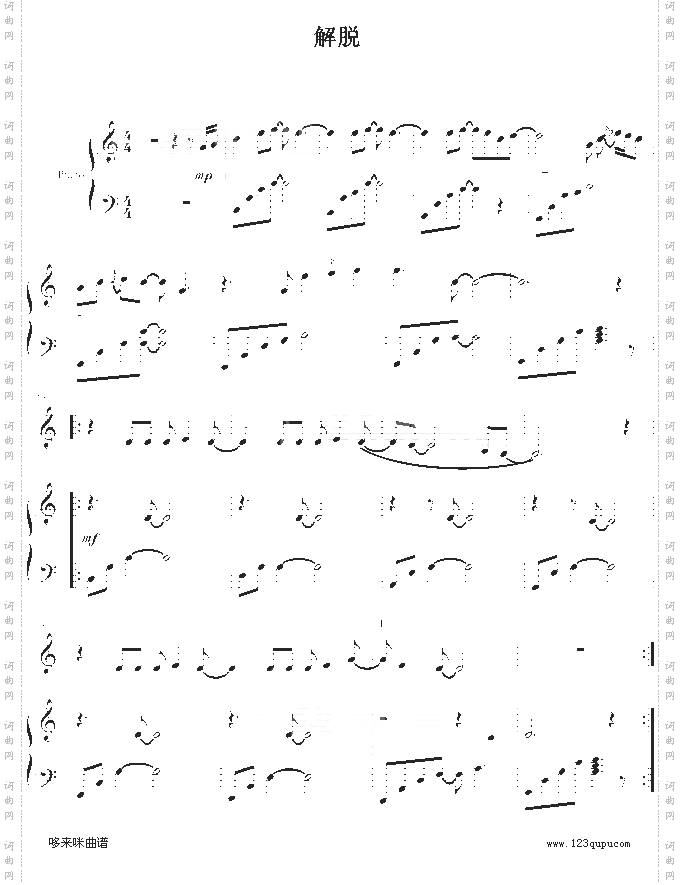 解脱
Piano
4
4
mp
4
4
mf
哆来咪曲谱
www.123qupu.com
词曲网